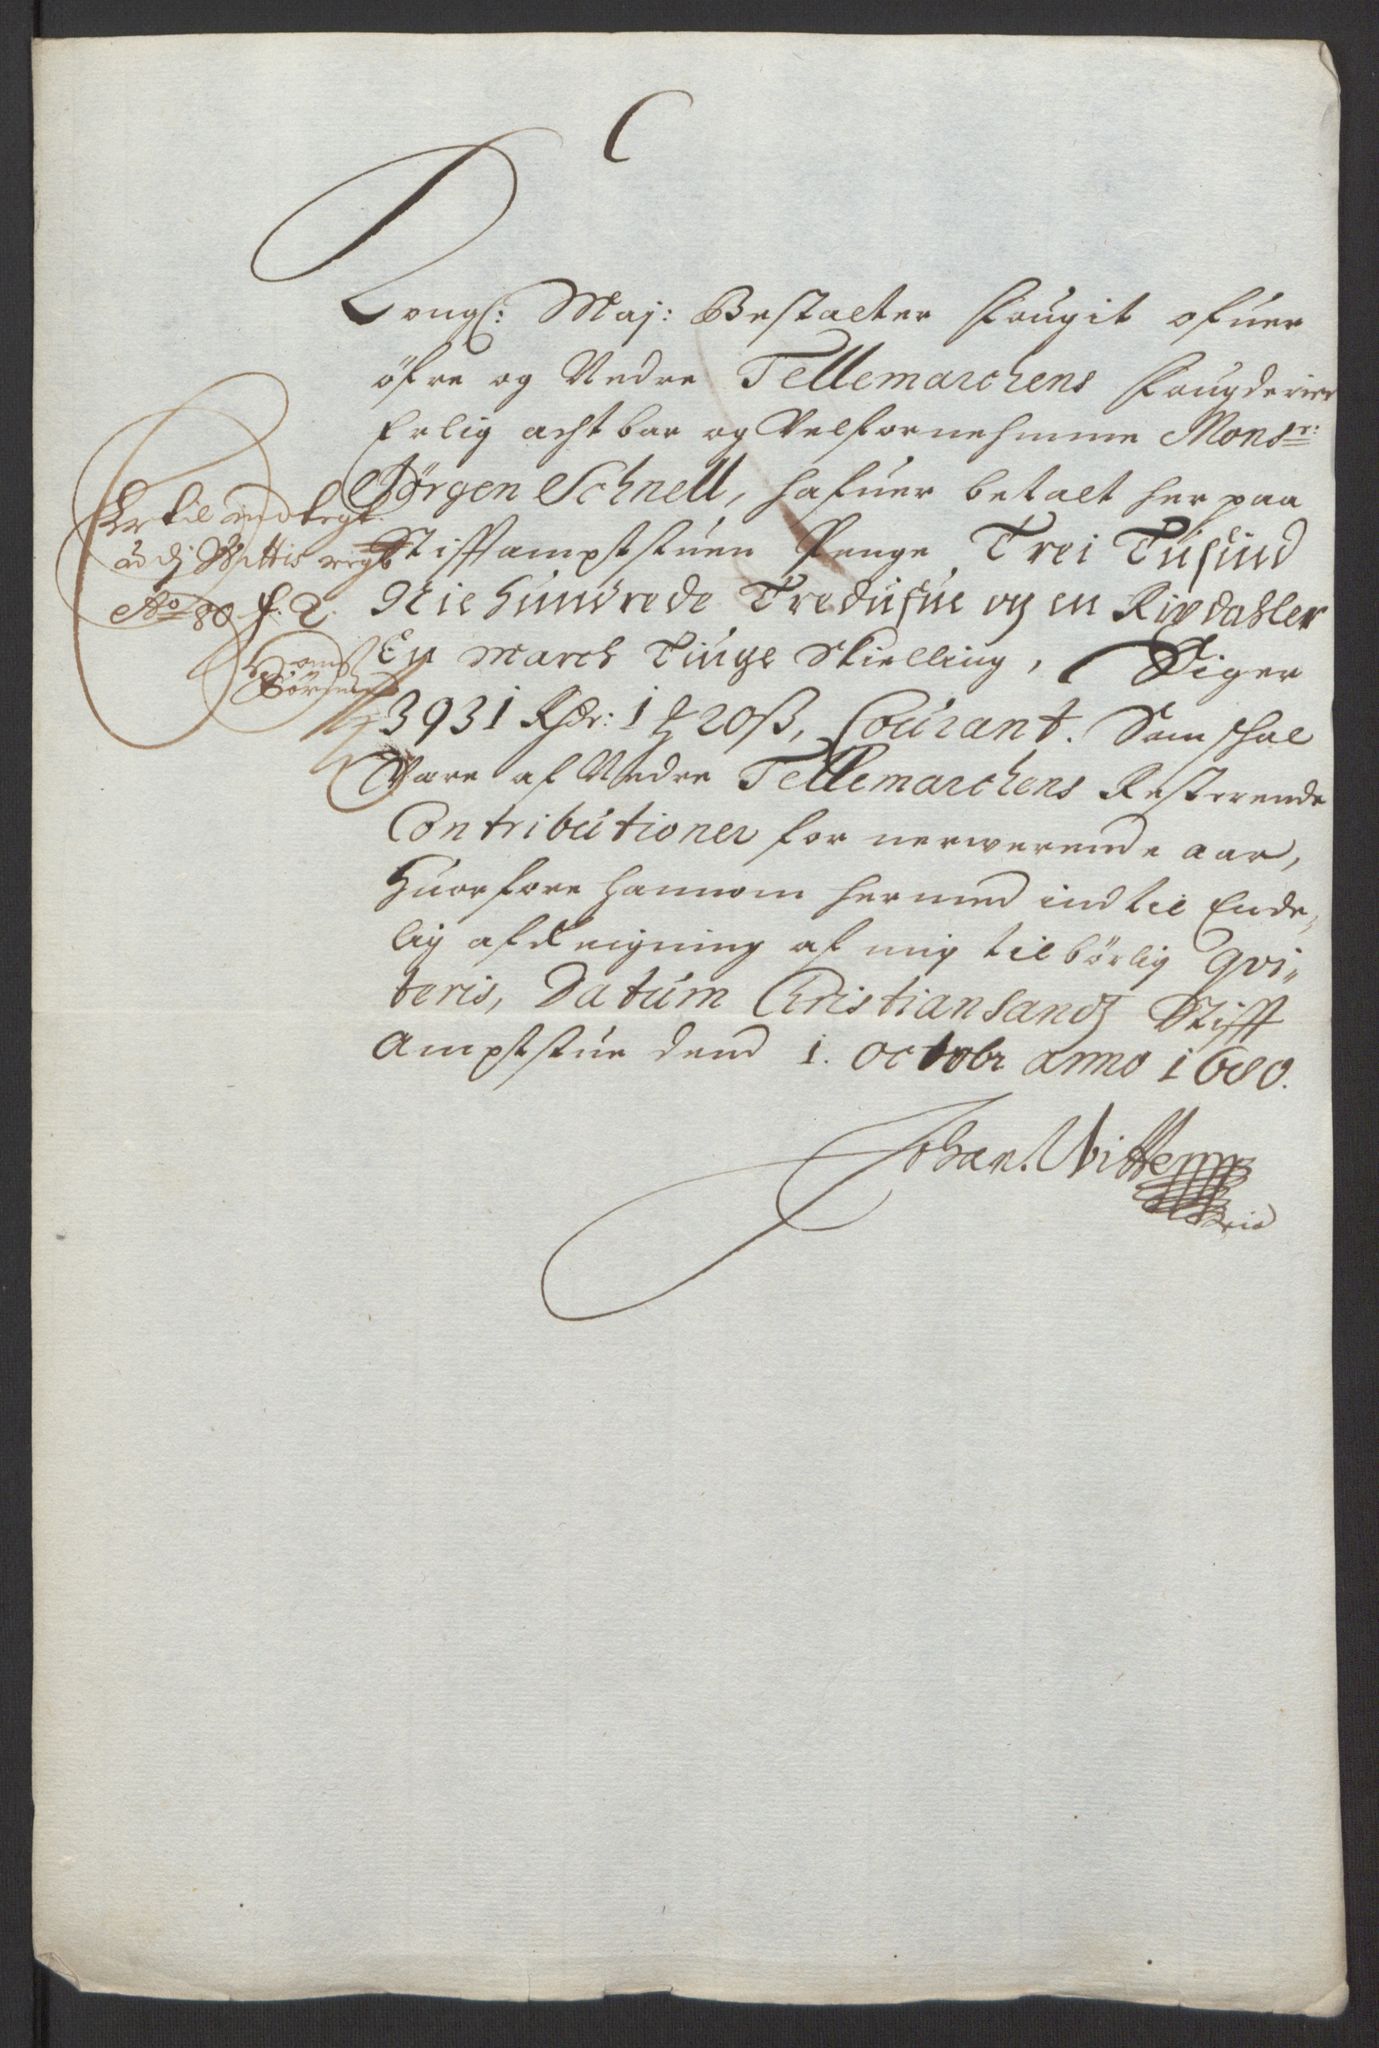 C
Kongl: Maj: Bestalter fougit ofuer
öfre og Nedre Tellemarchens fougderier
Erlig acht bar og Velfornehmme Monsr:
Jörgen Schnell, hafuer betalt her paa
Stiffamptstuen Penge Trei Tusind
Nie Hundrede Tredisfue og en Rixdahler
En March Tiuge Skielling, Siger
3931 Rdr: 1 ꝶ 20 ß, Courant. Som schal
Være af Nedre Tellemarchens Resterende
Contributioner for nerwerende aar,
Huorfore hannom hermed ind til Ende,,
lig afreigning af mig tilbörlig qvi,,
teris, Datum Christiansandz Stifft
Amptstue dend 1. octobr anno 1680.
Johan Wittem
Er til indtegt
udj
Ao 80 f. 2.
Hans